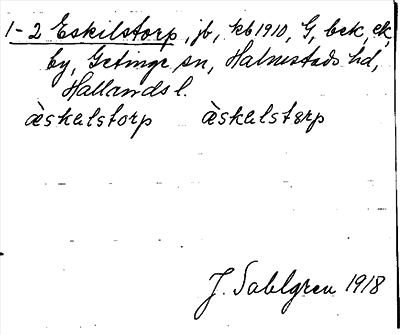 1-2 Eskilstorp, jb, kb 1910, G, bck, ek,
by, Getinge sn, Halmstads hd,
Hallands l.
æ̀skalstorp æ̀skalstərp
J. Sahlgren 1918